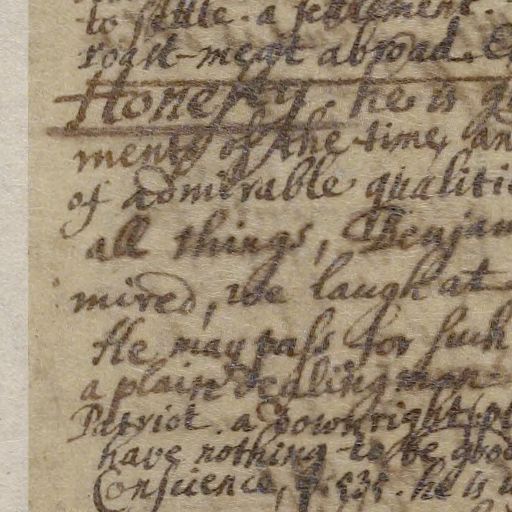 to settle. a settlement.
roast-meat abroad.
Honesty. he is
ments of the time, an
of admirable qualitie
all things, Benjam
mired, we laugh at
He may pass for such
a plain dealing man
Patriot. a downright
have nothing to be good
Conscience, p. 535. he is